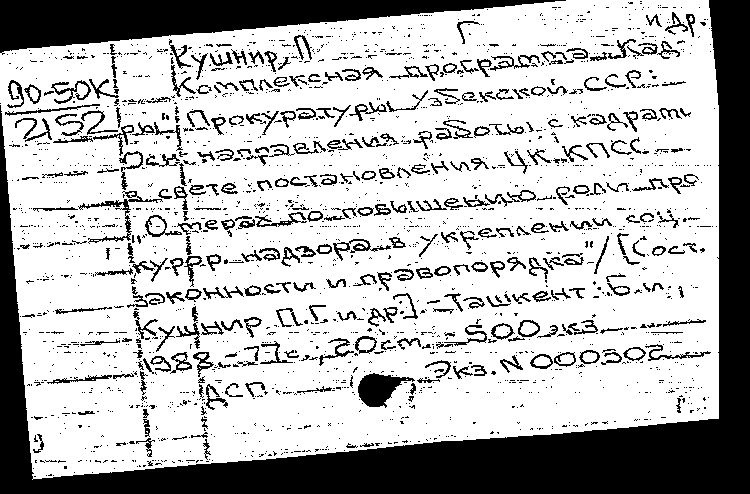 Кушнир, П Г и др.
90-50К
2152
Комплексная программа „Кад-
ры" Прокуратуры Узбекской ССР:
Осн. направления работы с кадрами
в свете постановления ЦК КПСС
„О мерах по повышению роли про
курор. надзора в укреплении соц.
законности и правопорядка"/[Сост.
Кушнир П.Г. и др.]. - Ташкент: Б.и.,
1988. - 77с.; 20см. - 500 экз.
ДСП Экз. N 000302